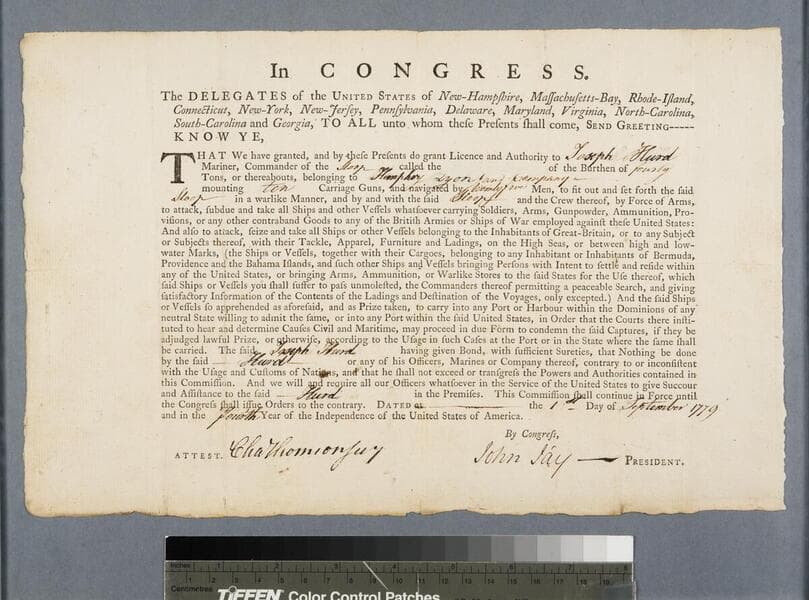 In CONGRESS.
The DELEGATES of the UNITED STATES of New-Hampſhire, Maſſachuſetts-Bay, Rhode-Iſland,
Connecticut, New-York, New-Jerſey, Pennſylvania, Delaware, Maryland, Virginia, North-Carolina,
South-Carolina and Georgia, TO ALL unto whom theſe Preſents ſhall come, SEND GREETING-----
KNOW YE,
THAT We have granted, and by theſe Preſents do grant Licence and Authority to Joseph Hurd
Mariner, Commander of the Sloop called the of the Burthen of
Tons, or thereabouts, belonging to Lyon and Company
mounting ten Carriage Guns, and navigated by Men, to fit out and ſet forth the ſaid
Sloop in a warlike Manner, and by and with the ſaid Sloop and the Crew thereof, by Force of Arms,
to attack, ſubdue and take all Ships and other Veſſels whatſoever carrying Soldiers, Arms, Gunpowder, Ammunition, Pro-
viſions, or any other contraband Goods to any of the Britiſh Armies or Ships of War employed againſt theſe United States:
And alſo to attack, ſeize and take all Ships or other Veſſels belonging to the Inhabitants of Great-Britain, or to any Subject
or Subjects thereof, with their Tackle, Apparel, Furniture and Ladings, on the High Seas, or between high and low-
water Marks, (the Ships or Veſſels, together with their Cargoes, belonging to any Inhabitant or Inhabitants of Bermuda,
Providence and the Bahama Iſlands, and ſuch other Ships and Veſſels bringing Perſons with Intent to ſettle and reſide within
any of the United States, or bringing Arms, Ammunition, or Warlike Stores to the ſaid States for the Uſe thereof, which
ſaid Ships or Veſſels you ſhall ſuffer to paſs unmoleſted, the Commanders thereof permitting a peaceable Search, and giving
ſatisfactory Information of the Contents of the Ladings and Deſtination of the Voyages, only excepted.) And the ſaid Ships
or Veſſels ſo apprehended as aforeſaid, and as Prize taken, to carry into any Port or Harbour within the Dominions of any
neutral State willing to admit the ſame, or into any Port within the ſaid United States, in Order that the Courts there inſti-
tuted to hear and determine Cauſes Civil and Maritime, may proceed in due Form to condemn the ſaid Captures, if they be
adjudged lawful Prize, or otherwiſe, according to the Uſage in ſuch Caſes at the Port or in the State where the ſame ſhall
be carried. The ſaid Joseph Hurd having given Bond, with ſufficient Sureties, that Nothing be done
by the ſaid Hurd or any of his Officers, Marines or Company thereof, contrary to or inconſiſtent
with the Uſage and Cuſtoms of Nations, and that he ſhall not exceed or tranſgreſs the Powers and Authorities contained in
this Commiſſion. And we will and require all our Officers whatſoever in the Service of the United States to give Succour
and Aſſiſtance to the ſaid Hurd in the Premiſes. This Commiſſion ſhall continue in Force until
the Congreſs ſhall iſſue Orders to the contrary. DATED at the 1st Day of September 1779
and in the fourth Year of the Independence of the United States of America.
By Congreſs,
ATTEST. Cha Thomson secy John Jay PRESIDENT.
Inches
Centimetres
TIFFEN Color Control Patches